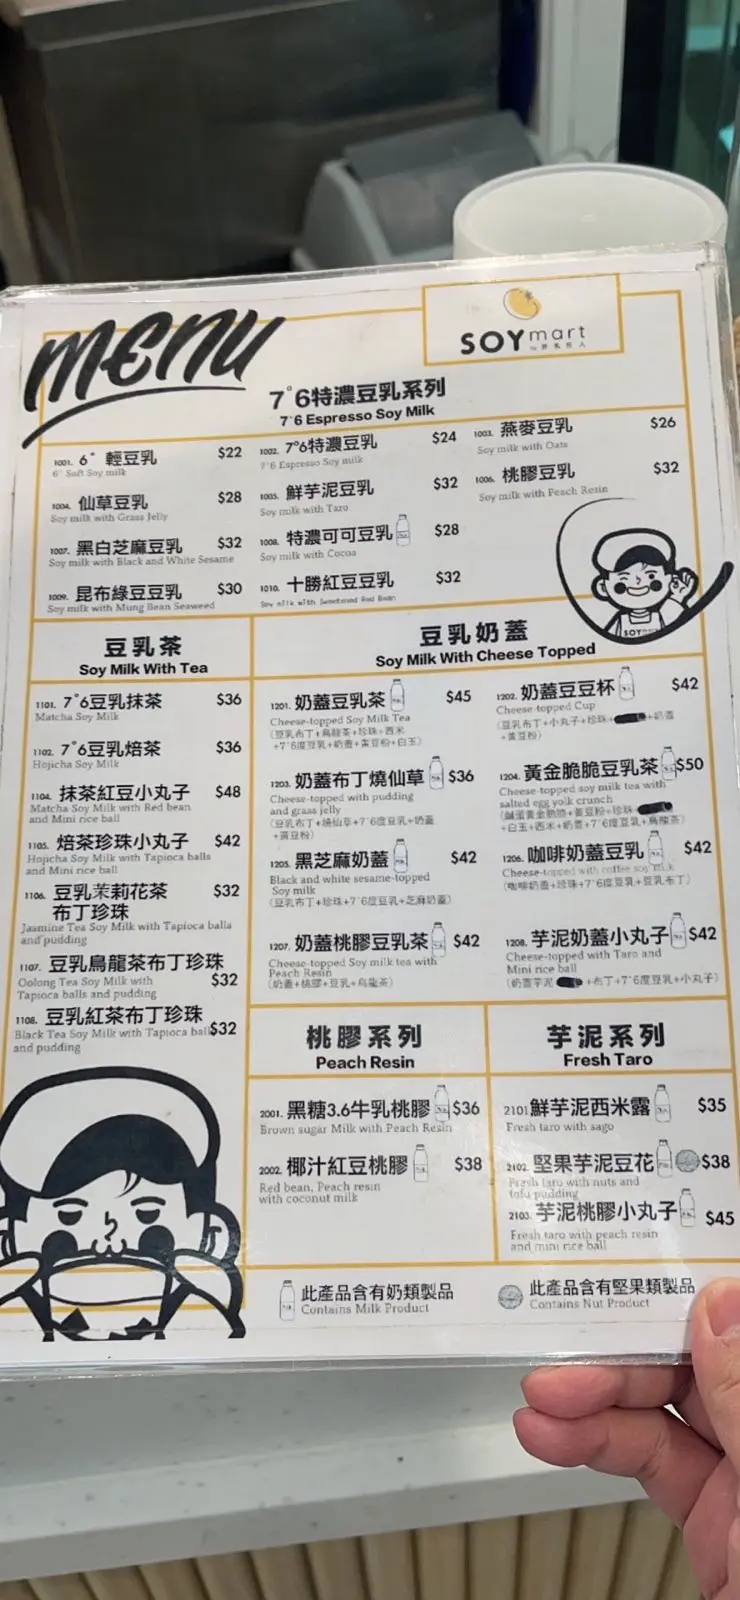 MENU
SOYmart
7°6特濃豆乳系列
7°6 Espresso Soy Milk
1001. 6° 輕豆乳 $22
6° Soft Soy milk
1002. 7°6特濃豆乳 $24
7°6 Espresso Soy milk
1003. 燕麥豆乳 $26
Soy milk with Oats
1004. 仙草豆乳 $28
Soy milk with Grass Jelly
1005. 鮮芋泥豆乳 $32
Soy milk with Taro
1006. 桃膠豆乳 $32
Soy milk with Peach Resin
1007. 黑白芝麻豆乳 $32
Soy milk with Black and White Sesame
1008. 特濃可可豆乳 $28
Soy milk with Cocoa
1009. 昆布綠豆豆乳 $30
Soy milk with Mung Bean Seaweed
1010. 十勝紅豆豆乳 $32
Soy milk with Sweetened Red Bean
豆乳茶
Soy Milk With Tea
1101. 7°6豆乳抹茶 $36
Matcha Soy Milk
1102. 7°6豆乳焙茶 $36
Hojicha Soy Milk
1104. 抹茶紅豆小丸子 $48
Matcha Soy Milk with Red bean
and Mini rice ball
1105. 焙茶珍珠小丸子 $42
Hojicha Soy Milk with Tapioca balls
and Mini rice ball
1106. 豆乳茉莉花茶 $32
布丁珍珠
Jasmine Tea Soy Milk with Tapioca balls
and pudding
1107. 豆乳烏龍茶布丁珍珠
Oolong Tea Soy Milk with $32
Tapioca balls and pudding
1108. 豆乳紅茶布丁珍珠
Black Tea Soy Milk with Tapioca ball $32
and pudding
豆乳奶蓋
Soy Milk With Cheese Topped
1201. 奶蓋豆乳茶 $45
Cheese-topped Soy Milk Tea
(豆乳布丁+烏龍茶+珍珠+西米
+7°6度豆乳+奶蓋+黃豆粉+白玉)
1202. 奶蓋豆豆杯 $42
Cheese-topped Cup
(豆乳布丁+小丸子+珍珠+ +奶蓋
+黃豆粉)
1203. 奶蓋布丁燒仙草 $36
Cheese-topped with pudding
and grass jelly
(豆乳布丁+燒仙草+7°6度豆乳+奶蓋
+黃豆粉)
1204. 黃金脆脆豆乳茶 $50
Cheese-topped soy milk tea with
salted egg yolk crunch
(鹹蛋黃金脆脆+黃豆粉+珍珠+
+白玉+西米+奶蓋+7°6度豆乳+烏龍茶)
1205. 黑芝麻奶蓋 $42
Black and white sesame-topped
Soy milk
(豆乳布丁+珍珠+7°6度豆乳+芝麻奶蓋)
1206. 咖啡奶蓋豆乳 $42
Cheese-topped with coffee soy milk
(咖啡奶蓋+珍珠+7°6度豆乳+豆乳布丁)
1207. 奶蓋桃膠豆乳茶 $42
Cheese-topped Soy milk tea with
Peach Resin
(奶蓋+桃膠+豆乳+烏龍茶)
1208. 芋泥奶蓋小丸子 $42
Cheese-topped with Taro and
Mini rice ball
(奶蓋芋泥 +布丁+7°6度豆乳+小丸子)
桃膠系列
Peach Resin
2001. 黑糖3.6牛乳桃膠 $36
Brown sugar Milk with Peach Resin
2002. 椰汁紅豆桃膠 $38
Red bean, Peach resin
with coconut milk
芋泥系列
Fresh Taro
2101 鮮芋泥西米露 $35
Fresh taro with sago
2102. 堅果芋泥豆花 $38
Fresh taro with nuts and
tofu pudding
2103. 芋泥桃膠小丸子 $45
Fresh taro with peach resin
and mini rice ball
此產品含有奶類製品
Contains Milk Product
此產品含有堅果類製品
Contains Nut Product